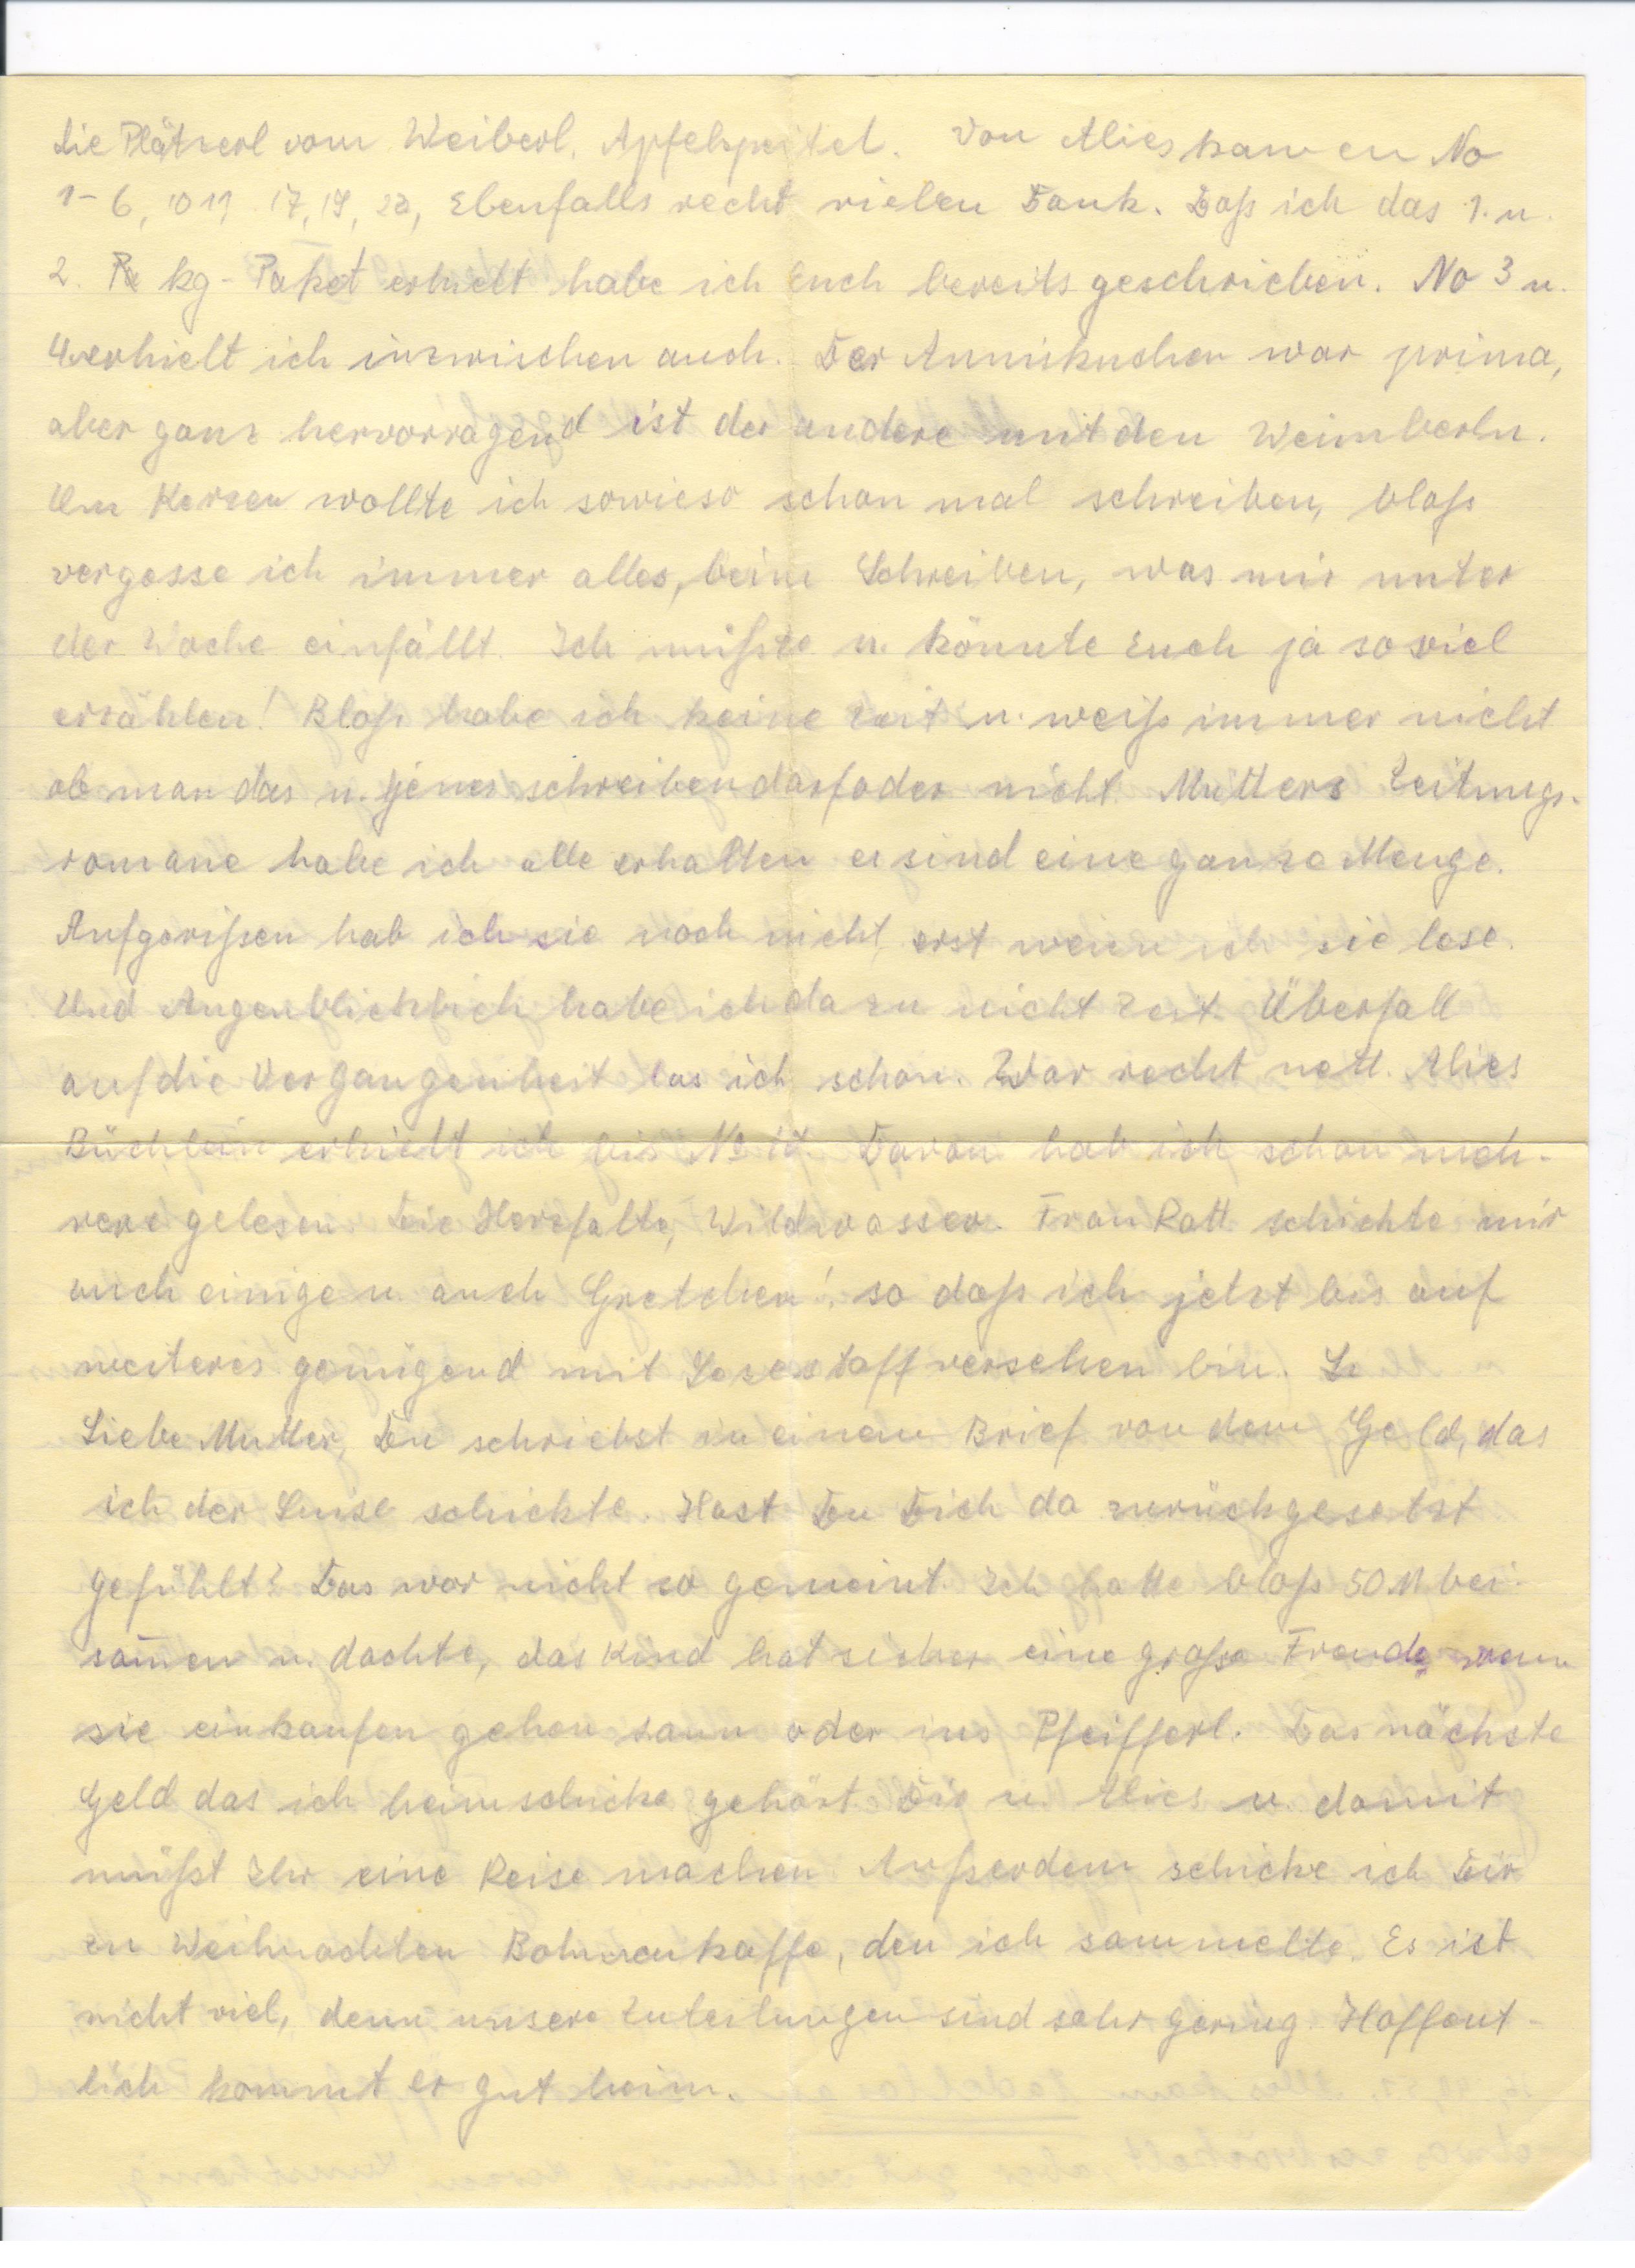 die Plätzerl vom Weiberl, Apfelspeitel. Von Alies kamen No
1-6, 10 11 17, 19, 20, Ebenfalls recht vielen Dank. Daß ich das 1. u.
2. kg-Paket erhielt habe ich Euch bereits geschrieben. No 3 u.
4 erhielt ich inzwischen auch. Der Annikuchen war prima,
aber ganz hervorragend ist der andere mit den Weimberln.
Um Kerzen wollte ich sowieso schon mal schreiben, bloß
vergesse ich immer alles, beim Schreiben, was mir unter
der Woche einfällt. Ich müßte u. könnte Euch ja soviel
erzählen! Bloß habe ich keine Zeit u. weiß immer nicht
ob man das u. jenes schreiben darf oder nicht. Mutters Zeitungs-
romane habe ich alle erhalten es sind eine ganze Menge.
Aufgerißen hab ich sie noch nicht, erst wenn ich sie lese.
Und Augenblicklich habe ich dazu nicht Zeit. Überfall
auf die Vergangenheit las ich schon. War recht nett. Alies
Büchlein erhielt ich bis No Davon hab ich schon meh-
rere gelesen. Die Wildwasser. Frau Ratt schickte mir
auch einige u. auch Gretchen! so daß ich jetzt bis auf
weiteres genügend mit Lesestoff versehen bin. Li
Liebe Mutter, Du schriebst in einem Brief von dem Geld, das
ich der Luise schickte. Hast Du Dich da zurückgesetzt
gefühlt? Das war nicht so gemeint. Ich hatte bloß 50 M bei-
sam̄en u. dachte, das Kind hat sicher eine große Freude wenn
sie einkaufen gehen kann oder ins Pfeifferl. Das nächste
Geld das ich heimschicke gehört Dir u. Alies u. damit
müßt Ihr eine Reise machen. Außerdem schicke ich Dir
zu Weihnachten Bohnenkaffe, den ich sammelte. Es ist
nicht viel, denn unsere Zuteilungen sind sehr gering. Hoffent-
lich kommt er gut heim.